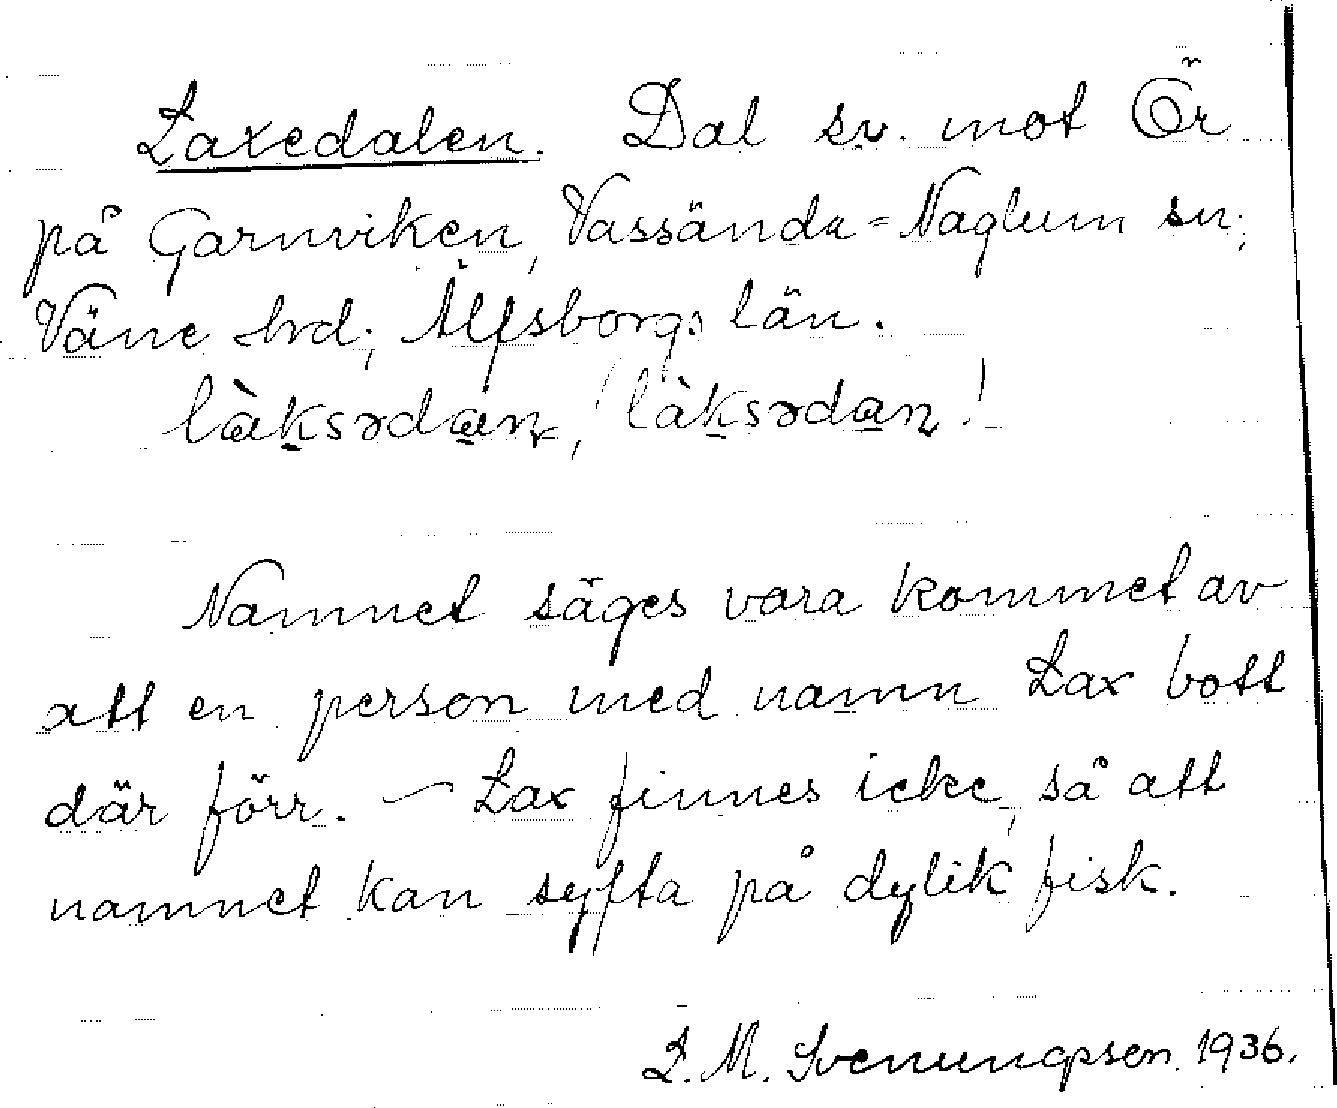 Laxedalen. Dal sv. mot Ör
på Garnviken, Vassända=Naglum sn;
Väne hrd; Älfsborgs län.
làksədan, làksədan!
Namnet säges vara kommet av
att en person med namn Lax bott
där förr. – Lax finnes icke, så att
namnet kan syfta på dylik fisk.
L. M. Svenungsson 1936.